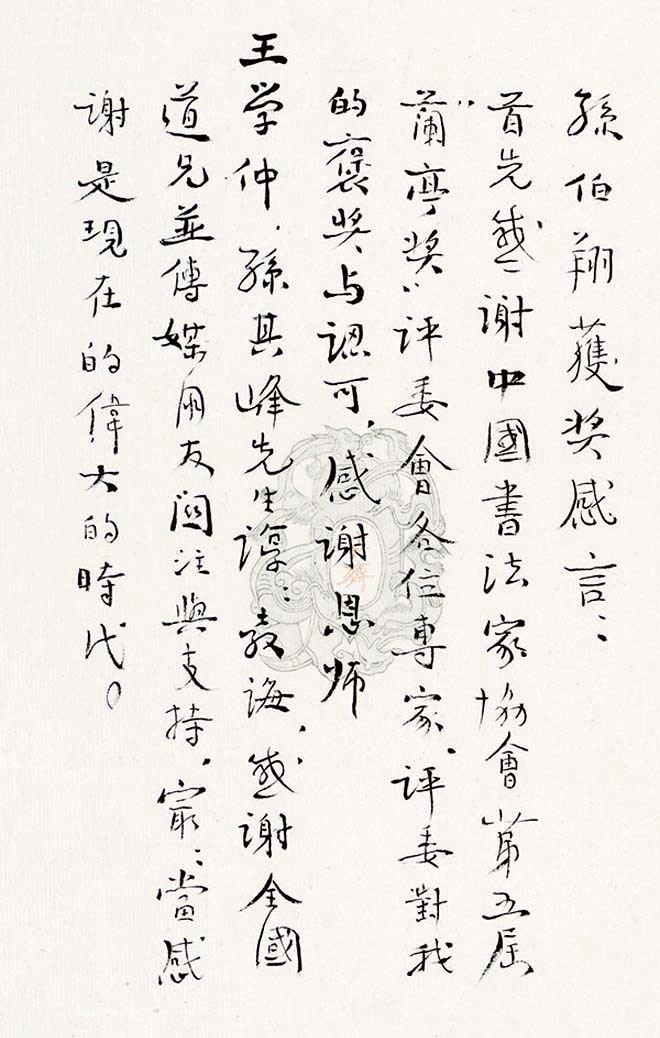 孫伯翔獲奖感言：
首先感謝中國書法家協會第五届
“蘭亭奖”評委會各位專家、評委對我
的褒奖与認可，感謝恩师
王学仲、孫其峰先生諄：教誨，感謝全國
道兄並傳媒朋友關注與支持，最：當感
謝是現在的偉大的時代。